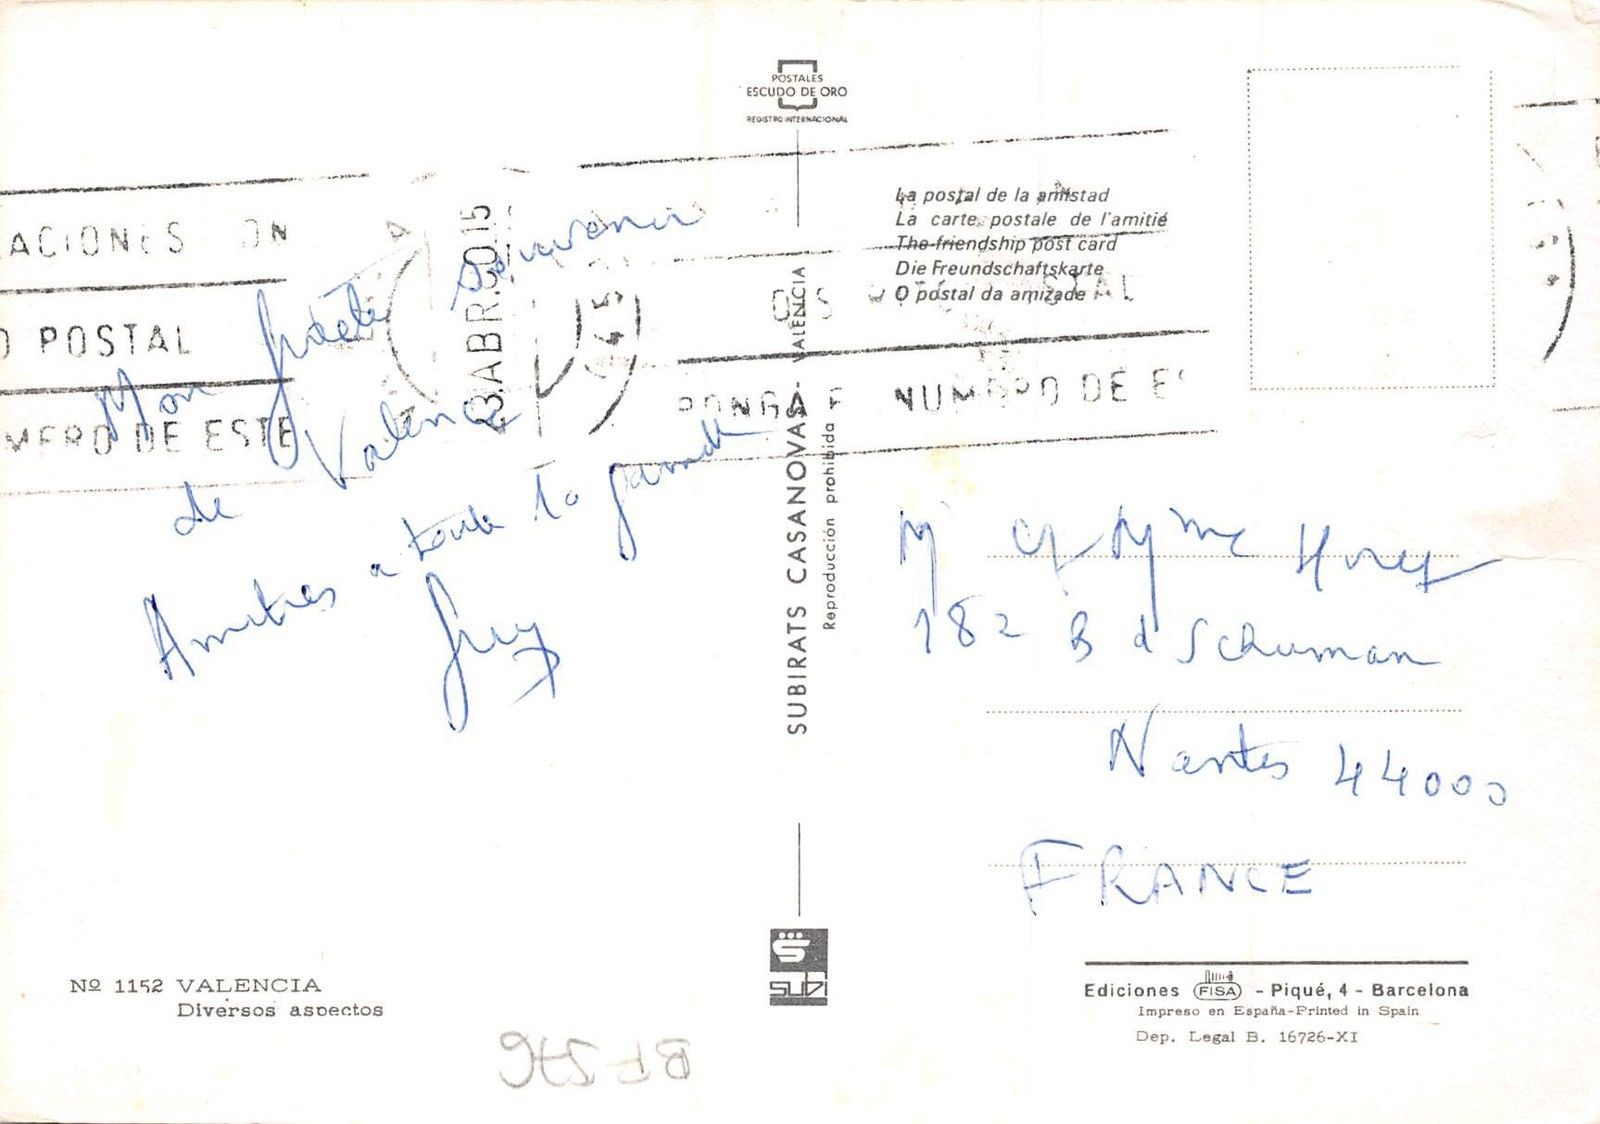 POSTALES
ESCUDO DE ORO
REGISTRO INTERNACIONAL
La postal de la amistad
La carte postale de l'amitié
The friendship post card
Die Freundschaftskarte
O postal da amizade
ACIONES ON
O POSTAL
MERO DE ESTE
3.ABR.8015
OSTAL
PONGA E NUMERO DE ES
Mon souvenir
de Valence
Amitiés a toute la famille
Guy
SUBIRATS CASANOVAS - VALENCIA
Reproducción prohibida
M et Mme
182 Bd Schuman
Nantes 44000
FRANCE
SUBI
Nº 1152 VALENCIA
Diversos aspectos
Ediciones FISA - Piqué, 4 - Barcelona
Impreso en España-Printed in Spain
Dep. Legal B. 16726-XI
BF576